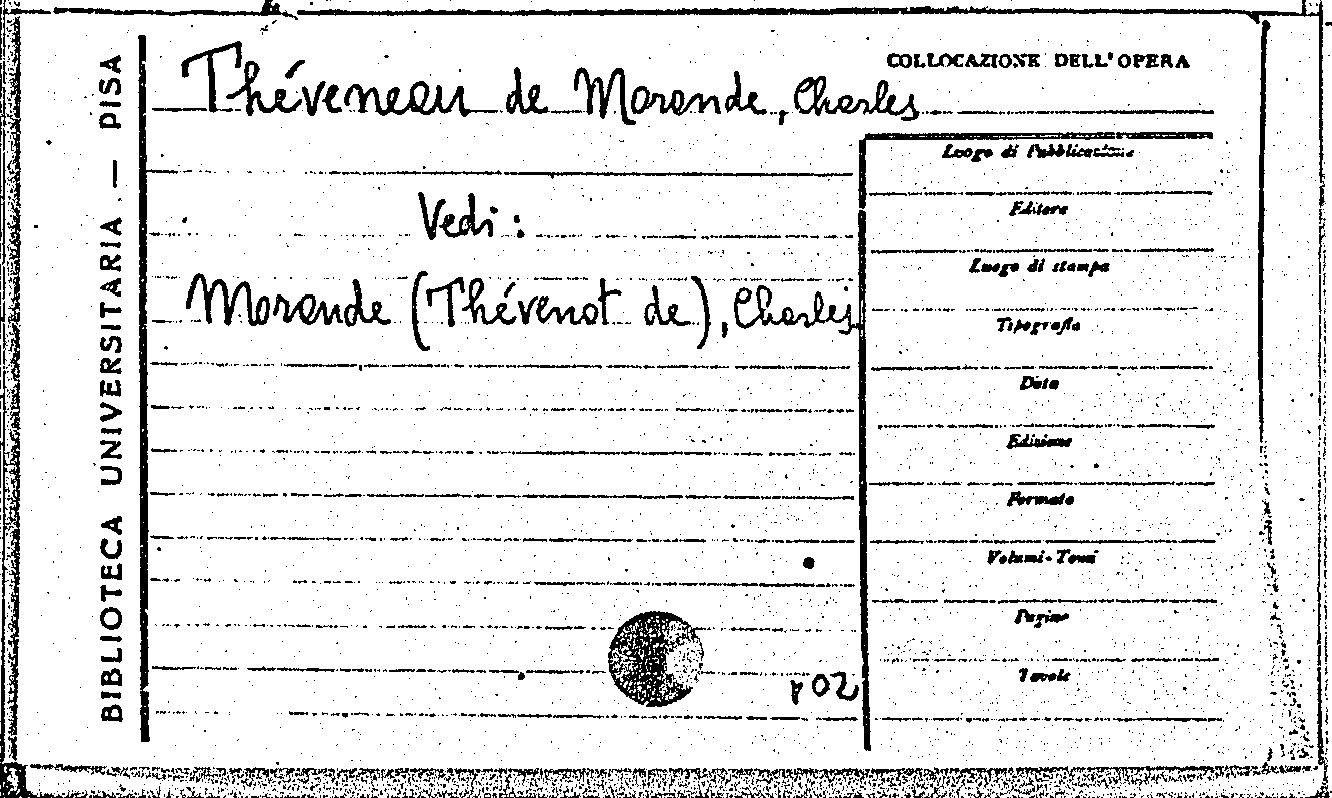 BIBLIOTECA UNIVERSITARIA — PISA
COLLOCAZIONE DELL'OPERA
Théveneau de Morande, Charles
Vedi :
Morande (Thévenot de), Charles
Luogo di Pubblicazione
Editore
Luogo di stampa
Tipografia
Data
Edizione
Formato
Volumi-Tomi
Pagine
Tavole